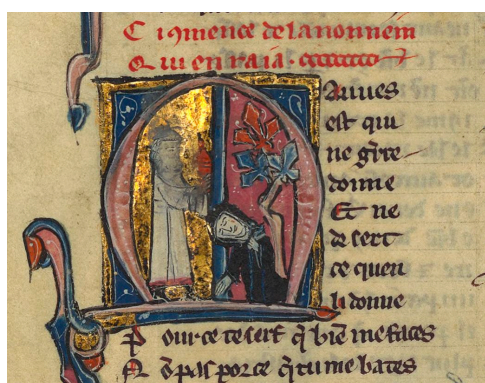 Ci 9mence de la nonnein
Qui enraia.
Mauues
est qui
ne g̃rre
donne
Et ne
desert
ce quen
li donne
Pour ce te sert q̃ bien me faces
Nõ pas por ce q̃ tu me bates